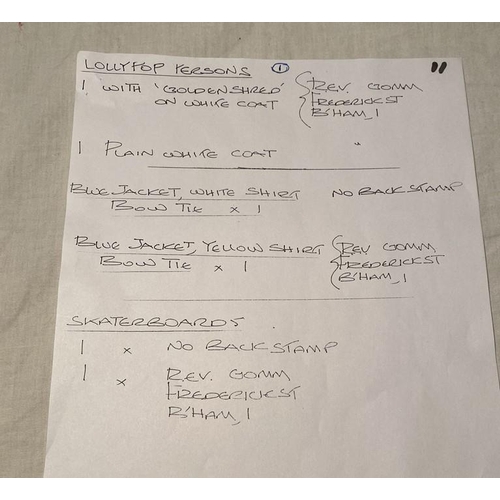 LOLLYPOP PERSONS 1 11
1 WITH 'GOLDEN SHRED' { REV. GOMM
ON WHITE COAT FREDERICK ST
B'HAM, 1
1 PLAIN WHITE COAT "
BLUE JACKET, WHITE SHIRT NO BACK STAMP
BOW TIE x 1
BLUE JACKET, YELLOW SHIRT { REV GOMM
BOW TIE x 1 FREDERICK ST
B'HAM, 1
SKATERBOARDS
1 x NO BACK STAMP
1 x REV. GOMM
FREDERICK ST
B'HAM, 1